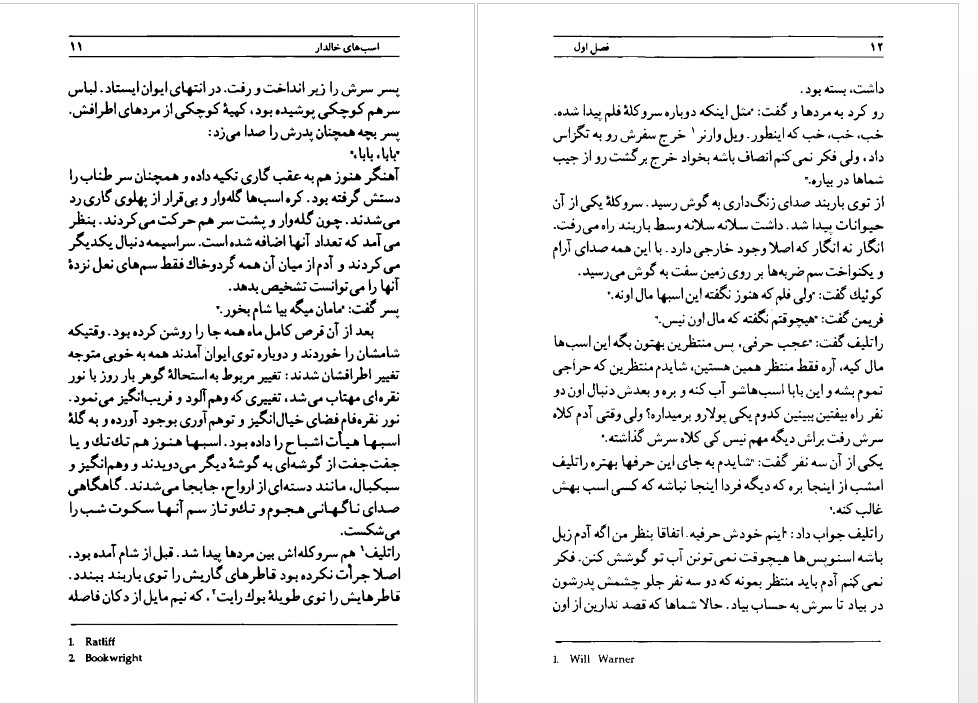 اسب‌های خالدار ۱۱
پسر سرش را زیر انداخت و رفت. در انتهای ایوان ایستاد. لباس
سرهم کوچکی پوشیده بود، کمپهٔ کوچکی از مردهای اطرافش.
پسر بچه همچنان پدرش را صدا می‌زد:
"بابا، بابا،"
آهنگر هنوز هم به عقب گاری تکیه داده و همچنان سر طناب را
دستش گرفته بود. کره اسب‌ها گله‌وار و بی‌قرار از پهلوی گاری رد
می‌شدند. چون گله‌وار و پشت سر هم حرکت می‌کردند. بنظر
می آمد که تعداد آنها اضافه شده است. سراسیمه دنبال یکدیگر
می‌کردند و آدم از میان آن همه گردوخاك فقط سم‌های نعل نزدهٔ
آنها را می‌توانست تشخیص بدهد.
پسر گفت: "مامان میگه بیا شام بخور."
بعد از آن قرص کامل ماه همه جا را روشن کرده بود. وقتیکه
شامشان را خوردند و دوباره توی ایوان آمدند همه به خوبی متوجه
تغییر اطرافشان شدند: تغییر مربوط به استحالهٔ گوهر بار روز با نور
نقره‌ای مهتاب می‌شد، تغییری که وهم‌آلود و فریب‌انگیز می‌نمود.
نور نقره‌فام فضای خیال‌انگیز و توهم‌آوری بوجود آورده و به گلهٔ
اسبها هیأت اشباح را داده بود. اسبها هنوز هم تك‌تك و یا
جفت‌جفت از گوشه‌ای به گوشهٔ دیگر می‌دویدند و وهم‌انگیز و
سبکبال، مانند دسته‌ای از ارواح، جابجا می‌شدند. گاهگاهی
صدای ناگهانی هجوم و تك‌و‌تاز سم آنها سکوت شب را
می‌شکست.
راتلیف۱ هم سروکله‌اش بین مردها پیدا شد. قبل از شام آمده بود.
اصلا جرأت نکرده بود قاطرهای گاریش را توی باربند ببندد.
قاطرهایش را توی طویلهٔ بوك رایت۲، که نیم مایل از دکان فاصله
1. Ratliff
2. Bookwright
۱۲ فصل اول
داشت، بسته بود.
رو کرد به مردها و گفت: "مثل اینکه دوباره سروکلهٔ فلم پیدا شده.
خب، خب، خب که اینطور. ویل وارنر۱ خرج سفرش رو به تگزاس
داد، ولی فکر نمی‌کنم انصاف باشه بخواد خرج برگشت رو از جیب
شماها در بیاره."
از توی باربند صدای زنگ‌داری به گوش رسید. سروکلهٔ یکی از آن
حیوانات پیدا شد. داشت سلانه سلانه وسط باربند راه می‌رفت.
انگار نه انگار که اصلا وجود خارجی دارد. با این همه صدای آرام
و یکنواخت سم ضربه‌ها بر روی زمین سفت به گوش می‌رسید.
کوئیك گفت: "ولی فلم که هنوز نگفته این اسبها مال اونه."
فریمن گفت: "هیچوقتم نگفته که مال اون نیس."
راتلیف گفت: "عجب حرفی، پس منتظرین بهتون بگه این اسب‌ها
مال کیه، آره فقط منتظر همین هستین، شایدم منتظرین که حراجی
تموم بشه و این بابا اسب‌هاشو آب کنه و بره و بعدش دنبال اون دو
نفر راه بیفتین ببینین کدوم یکی پولارو برمیداره؟ ولی وقتی آدم کلاه
سرش رفت براش دیگه مهم نیس کی کلاه سرش گذاشته."
یکی از آن سه نفر گفت: "شایدم به جای این حرفها بهتره راتلیف
امشب از اینجا بره که دیگه فردا اینجا نباشه که کسی اسب بهش
غالب کنه."
راتلیف جواب داد: "اینم خودش حرفیه. اتفاقا بنظر من اگه آدم زبل
باشه اسنوپس‌ها هیچوقت نمی‌تونن آب تو گوشش کنن. فکر
نمی‌کنم آدم باید منتظر بمونه که دو سه نفر جلو چشمش پدرشون
در بیاد تا سرش به حساب بیاد. حالا شماها که قصد ندارین از اون
1. Will Warner